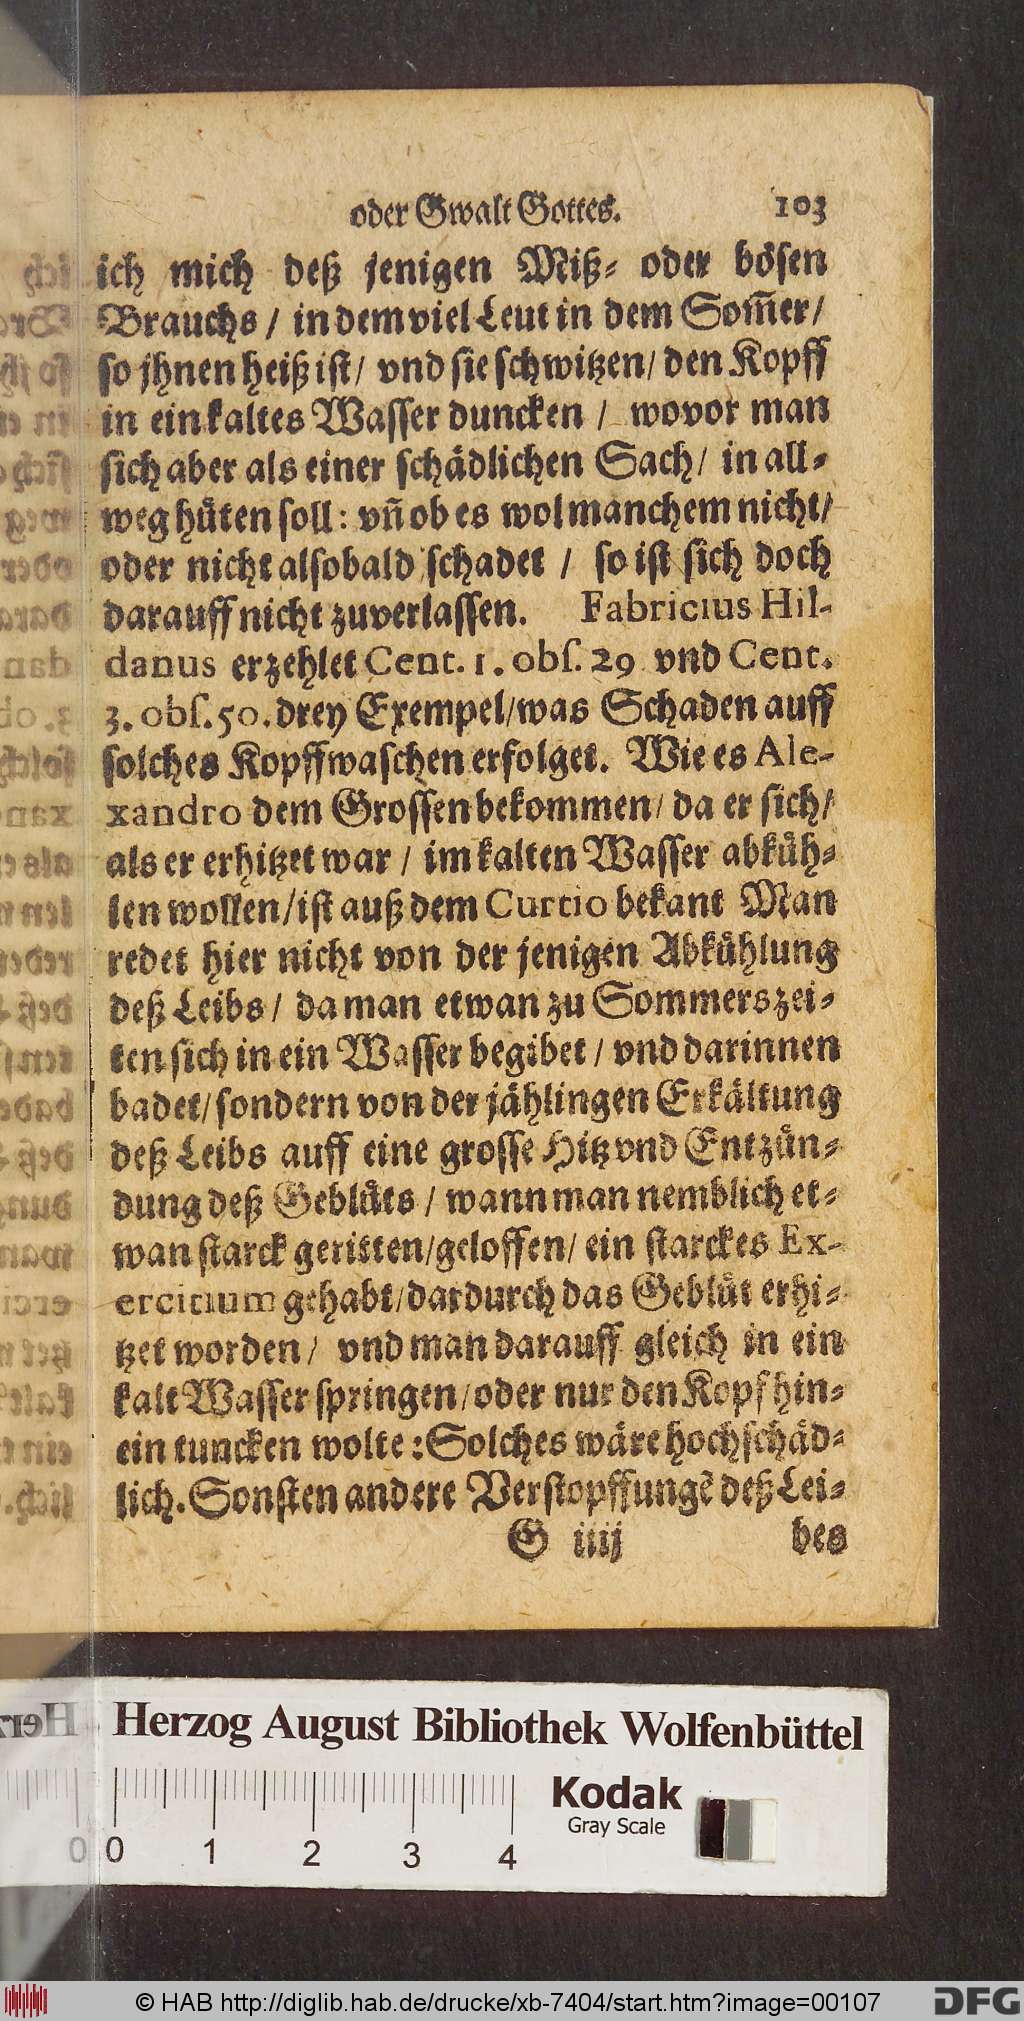 oder Gwalt Gottes. 103
ich mich deß jenigen Miß- oder bösen
Brauchs / in dem viel Leut in dem Som̄er /
so jhnen heiß ist / vnd sie schwitzen / den Kopff
in ein kaltes Wasser duncken / wovor man
sich aber als einer schädlichen Sach / in all-
weg hüten soll: vn̄ ob es wol manchem nicht /
oder nicht alsobald schadet / so ist sich doch
darauff nicht zuverlassen. Fabricius Hil-
danus erzehlet Cent. 1. obs. 29 vnd Cent.
3. obs. 50. drey Exempel / was Schaden auff
solches Kopffwaschen erfolget. Wie es Ale-
xandro dem Grossen bekommen / da er sich /
als er erhitzet war / im kalten Wasser abküh-
len wollen / ist auß dem Curtio bekant Man
redet hier nicht von der jenigen Abkühlung
deß Leibs / da man etwan zu Sommerszei-
ten sich in ein Wasser begibet / vnd darinnen
badet / sondern von der jählingen Erkältung
deß Leibs auff eine grosse Hitz vnd Entzün-
dung deß Geblüts / wann man nemblich et-
wan starck geritten / geloffen / ein starckes Ex-
ercitium gehabt / dardurch das Geblüt erhi-
tzet worden / vnd man darauff gleich in ein
kalt Wasser springen / oder nur den Kopf hin-
ein tuncken wolte: Solches wäre hochschäd-
lich. Sonsten andere Verstopffungē deß Lei-
G iiij bes
Herzog August Bibliothek Wolfenbüttel
Kodak
Gray Scale
0 0 1 2 3 4
© HAB http://diglib.hab.de/drucke/xb-7404/start.htm?image=00107
DFG